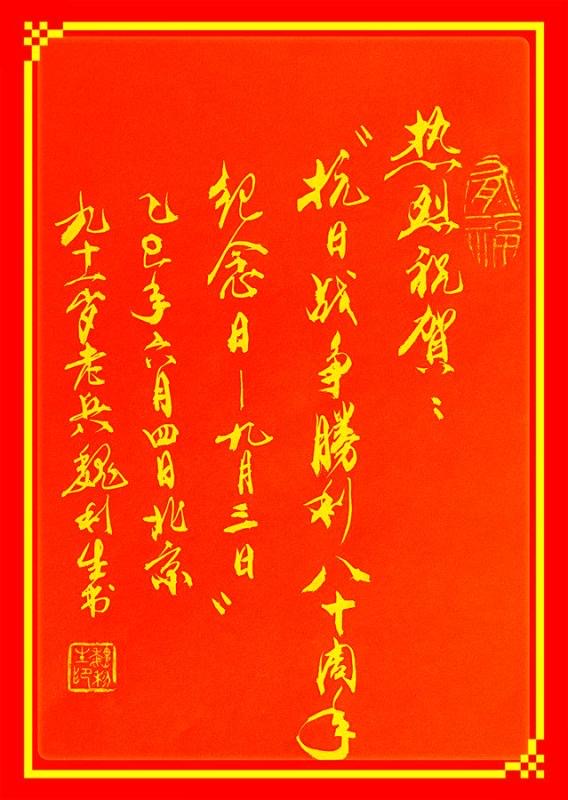 热烈祝賀：
“抗日战争勝利八十周年
纪念日—九月三日”
乙巳年六月四日北京
九十一岁老兵魏利生书
魏利生印